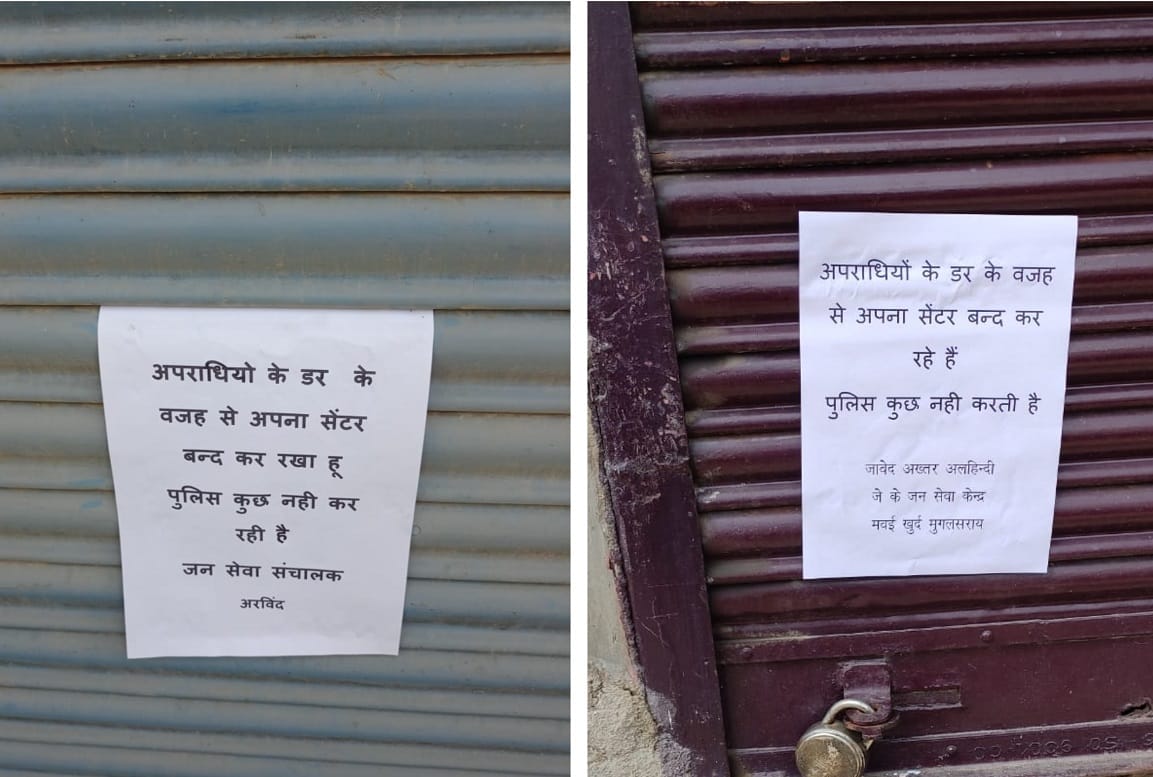 अपराधियो के डर के
वजह से अपना सेंटर
बन्द कर रखा हू
पुलिस कुछ नही कर
रही है
जन सेवा संचालक
अरविंद
अपराधियों के डर के वजह
से अपना सेंटर बन्द कर
रहे हैं
पुलिस कुछ नही करती है
जावेद अख्तर अलहिन्दी
जे के जन सेवा केन्द्र
मवई खुर्द मुगलसराय